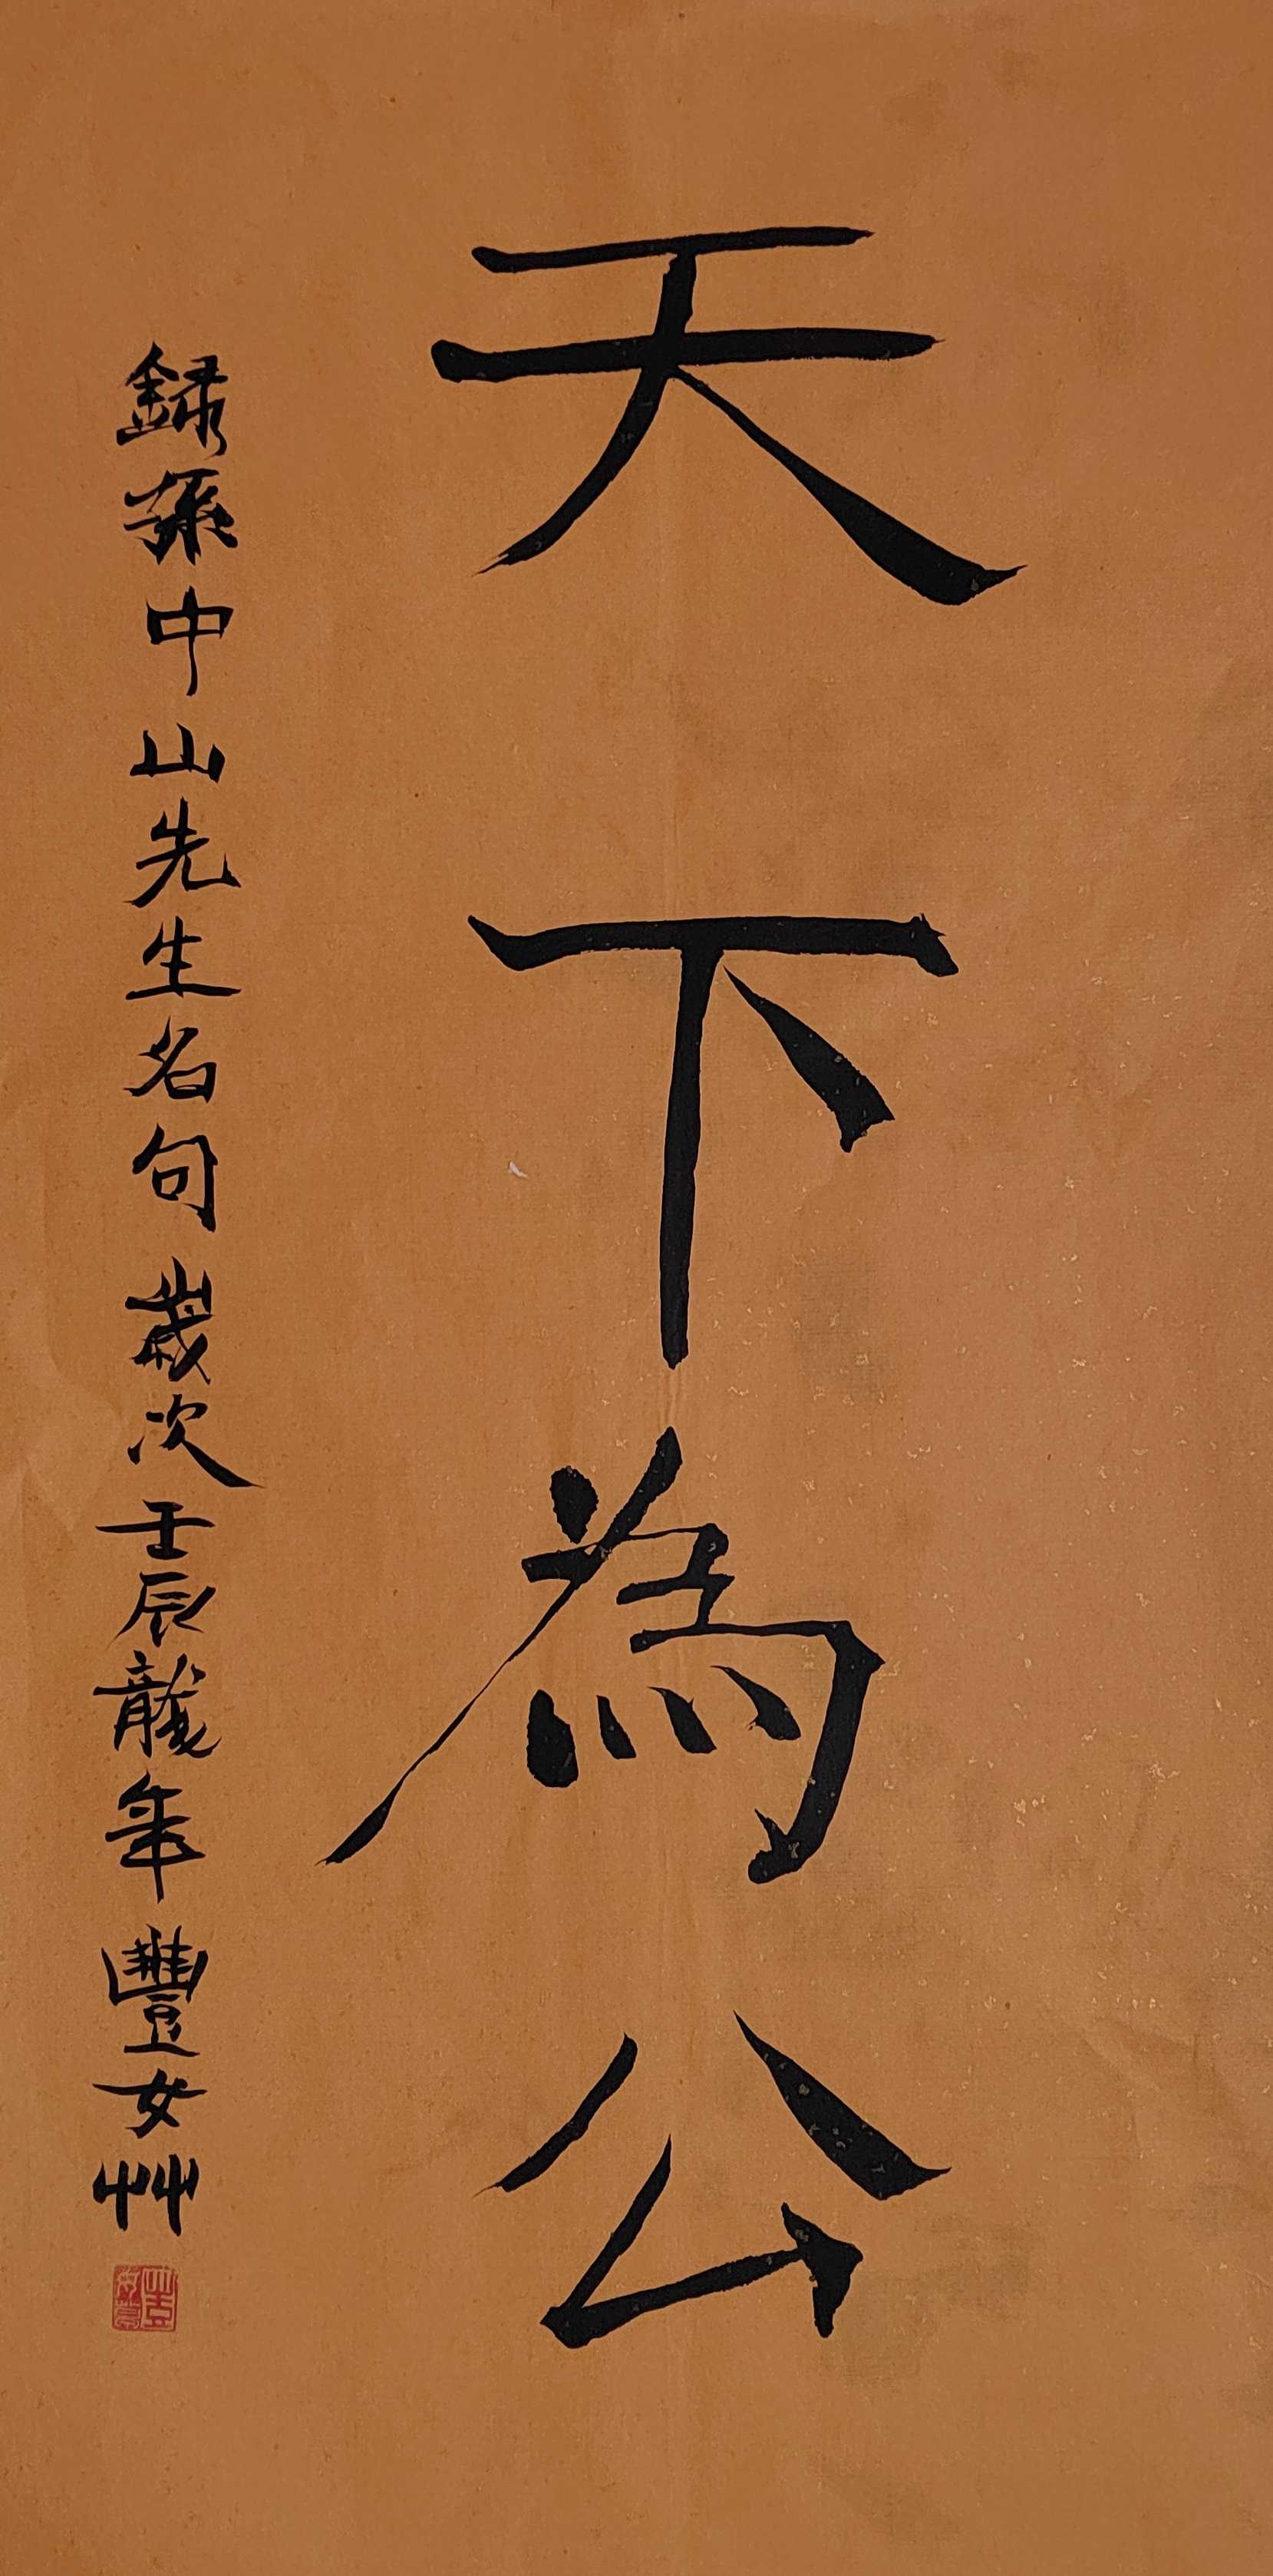 天下為公
錄孫中山先生名句 歲次壬辰龍年 豐女艸